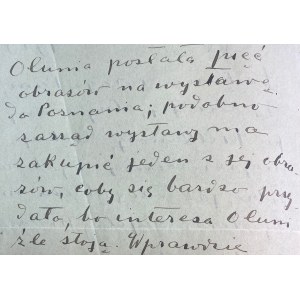 Olunia posłała pięć
obrazów na wystawę
do Poznania; podobno
zarząd wystawy ma
zakupić jeden z jej obra-
zów, coby się bardzo przy
dało, bo interesa Oluni
źle stoją. Wprawdzie